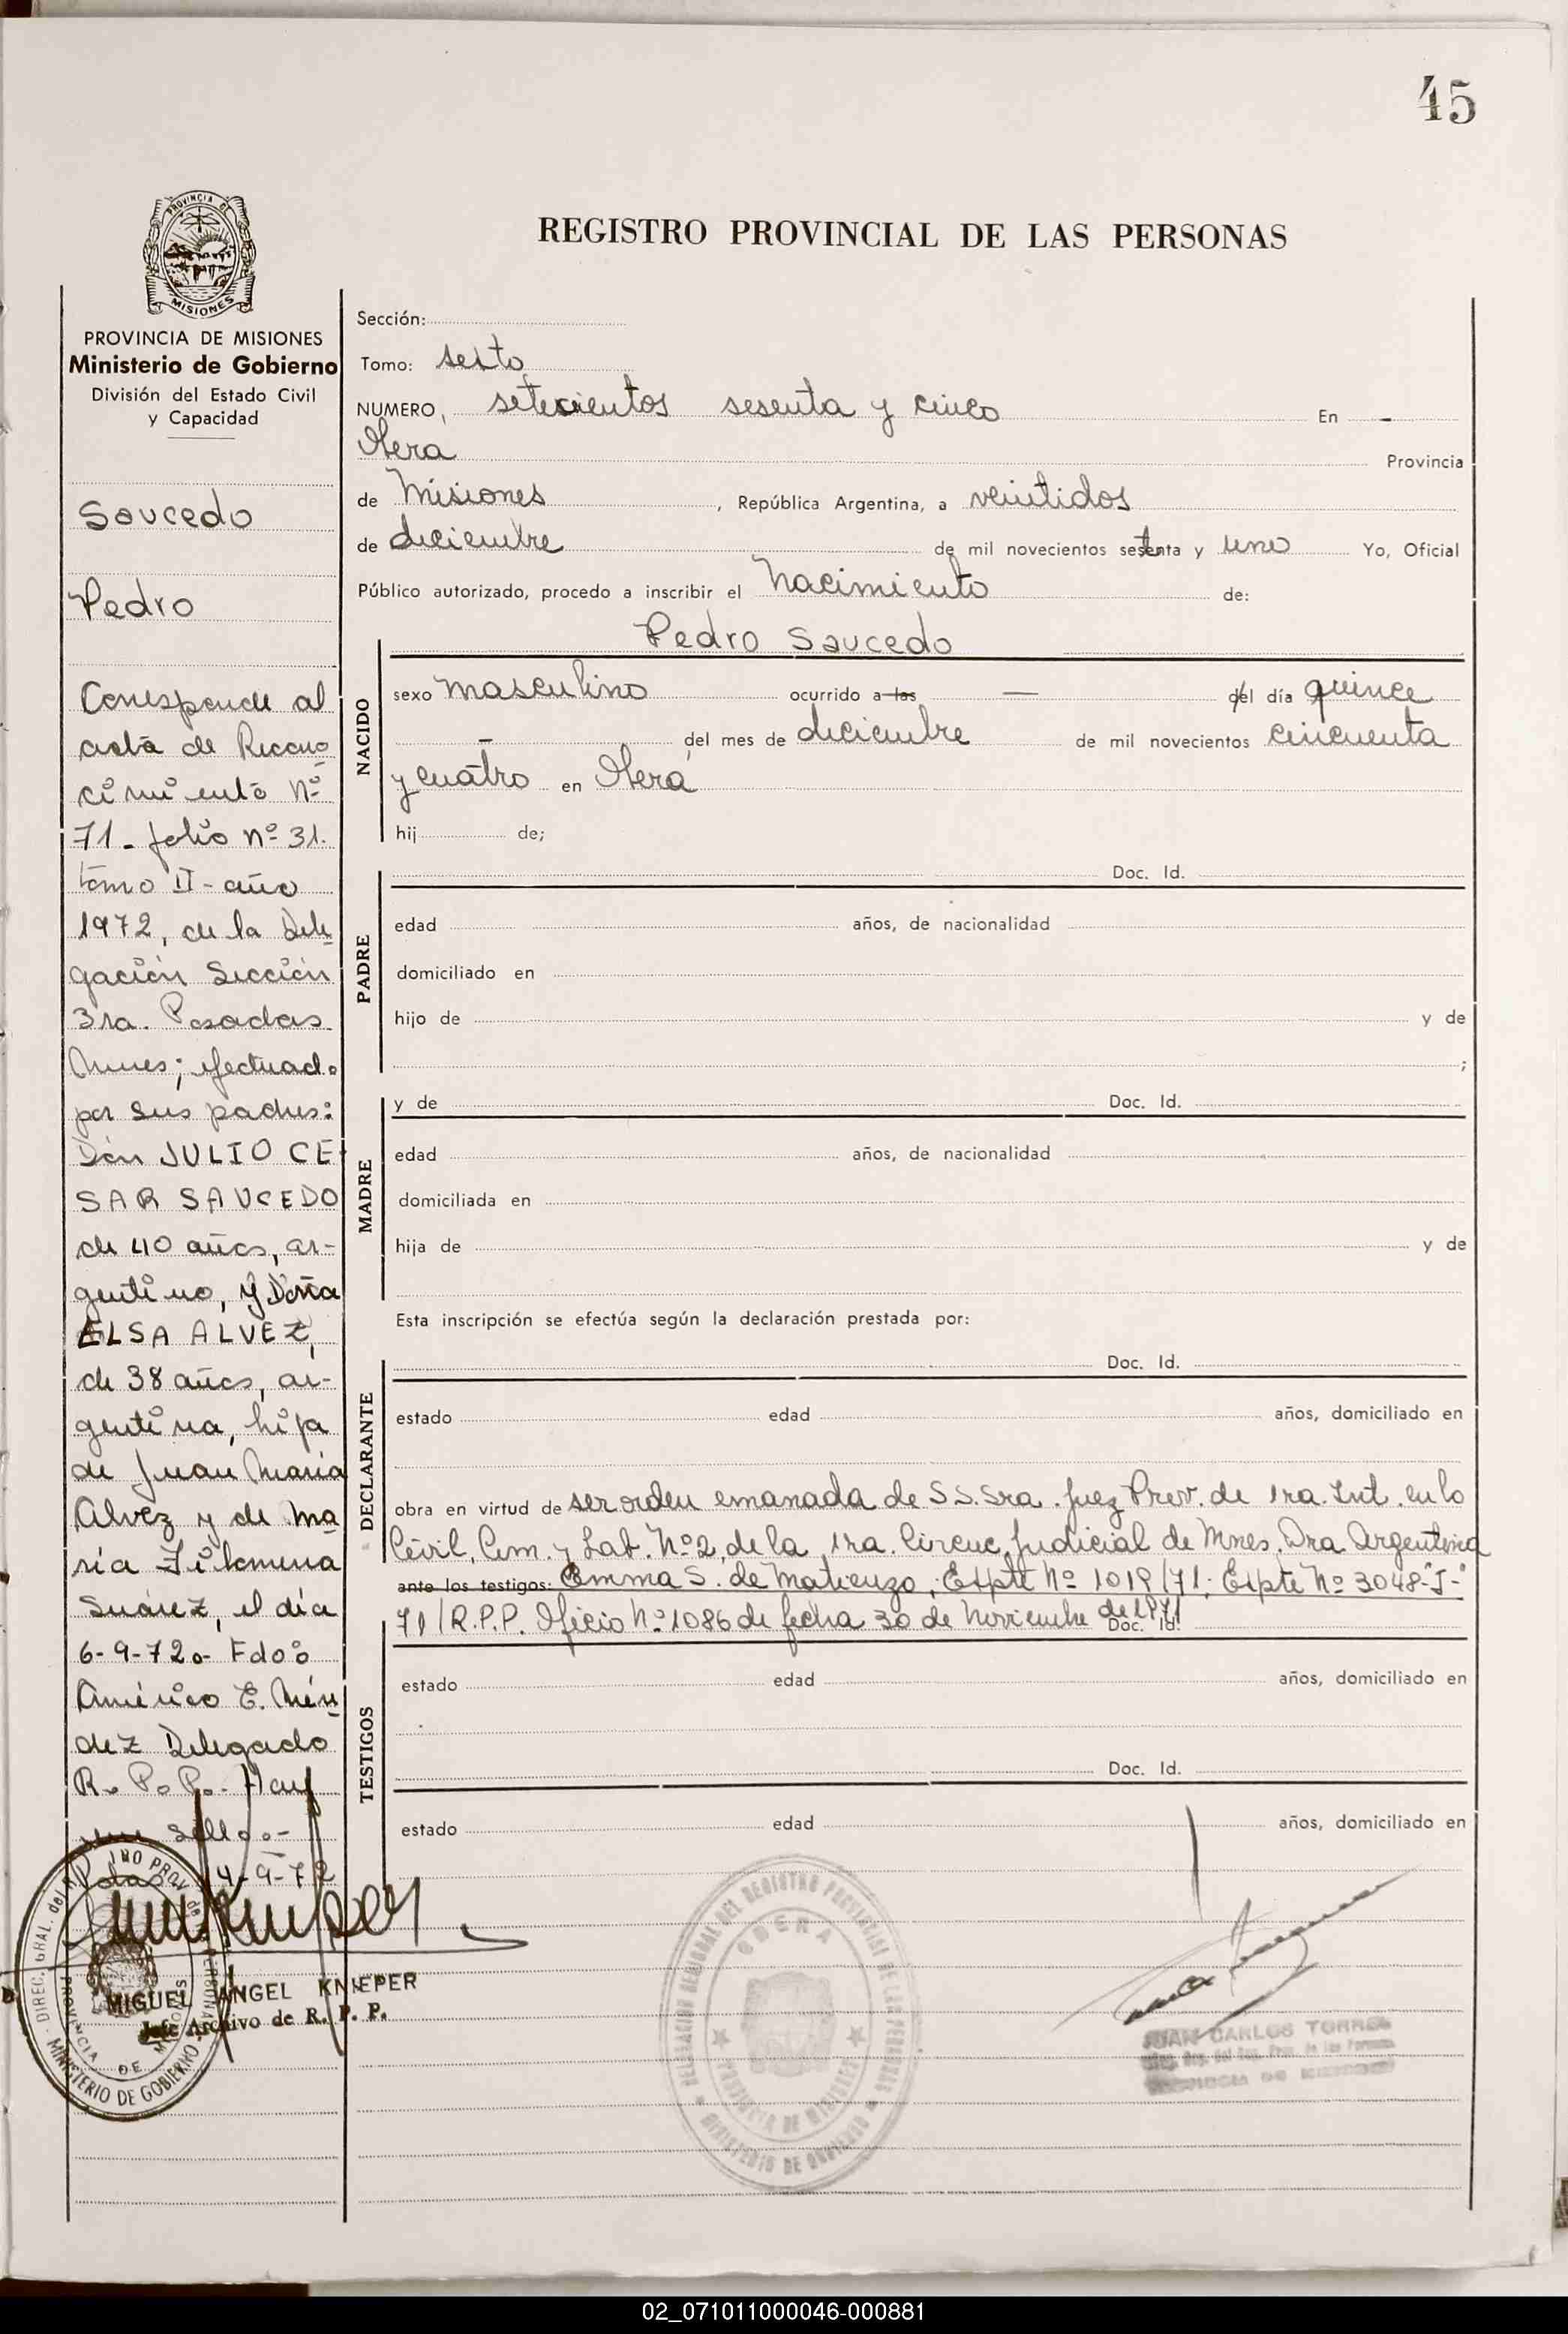 45
PROVINCIA DE
MISIONES
PROVINCIA DE MISIONES
Ministerio de Gobierno
División del Estado Civil
y Capacidad
Saucedo
Pedro
Corresponde al
acta de Recono
cimiento Nº
71 - folio nº 31.
tomo II - año
1972, de la Dele
gación Sección
3ra. Posadas
Mnes; efectuado
por sus padres:
Don JULIO CE
SAR SAUCEDO
de 40 años, ar-
gentino, y Doña
ELSA ALVEZ,
de 38 años, ar-
gentina, hija
de Juan María
Alvez y de Ma
ría Filomena
Suárez, el día
6-9-72.- Fdo:
Américo E. Mén
dez Delegado
R. P. P. - Hay
un sello.-
Pdas 14-9-72
MIGUEL ANGEL KNIEPER
Jefe Archivo de R. P. P.
REGISTRO PROVINCIAL DE LAS PERSONAS
Sección:
Tomo: sexto
NUMERO, setecientos sesenta y cinco En -
Oberá
Provincia
de Misiones, República Argentina, a veintidos
de diciembre de mil novecientos setenta y uno Yo, Oficial
Público autorizado, procedo a inscribir el Nacimiento de:
Pedro Saucedo
NACIDO
sexo masculino ocurrido a las — del día quince
- del mes de diciembre de mil novecientos cincuenta
y cuatro en Oberá
hij de;
PADRE
Doc. Id.
edad años, de nacionalidad
domiciliado en
hijo de y de
;
MADRE
y de Doc. Id.
edad años, de nacionalidad
domiciliada en
hija de y de
Esta inscripción se efectúa según la declaración prestada por:
DECLARANTE
Doc. Id.
estado edad años, domiciliado en
obra en virtud de ser orden emanada de S.S. Sra. Juez Prov. de 1ra. Inst. en lo
Civil, Com. y Lab. Nº 2, de la 1ra. Circuc. Judicial de Mnes. Dra. Argentina
ante los testigos: Emma S. de Matienzo; Expte Nº 1019/71; Expte Nº 3048-"J"-
71/R.P.P. Oficio Nº 1086 de fecha 30 de Noviembre de 1971
Doc. Id.
TESTIGOS
estado edad años, domiciliado en
Doc. Id.
estado edad años, domiciliado en
DELEGACION REGIONAL DEL REGISTRO PROVINCIAL DE LAS PERSONAS
OBERA
PROVINCIA DE MISIONES
MINISTERIO DE GOBIERNO
JUAN CARLOS TORRES
DIREC. GRAL. del
MINISTERIO DE GOBIERNO
PROVINCIA DE MISIONES
02_071011000046-000881